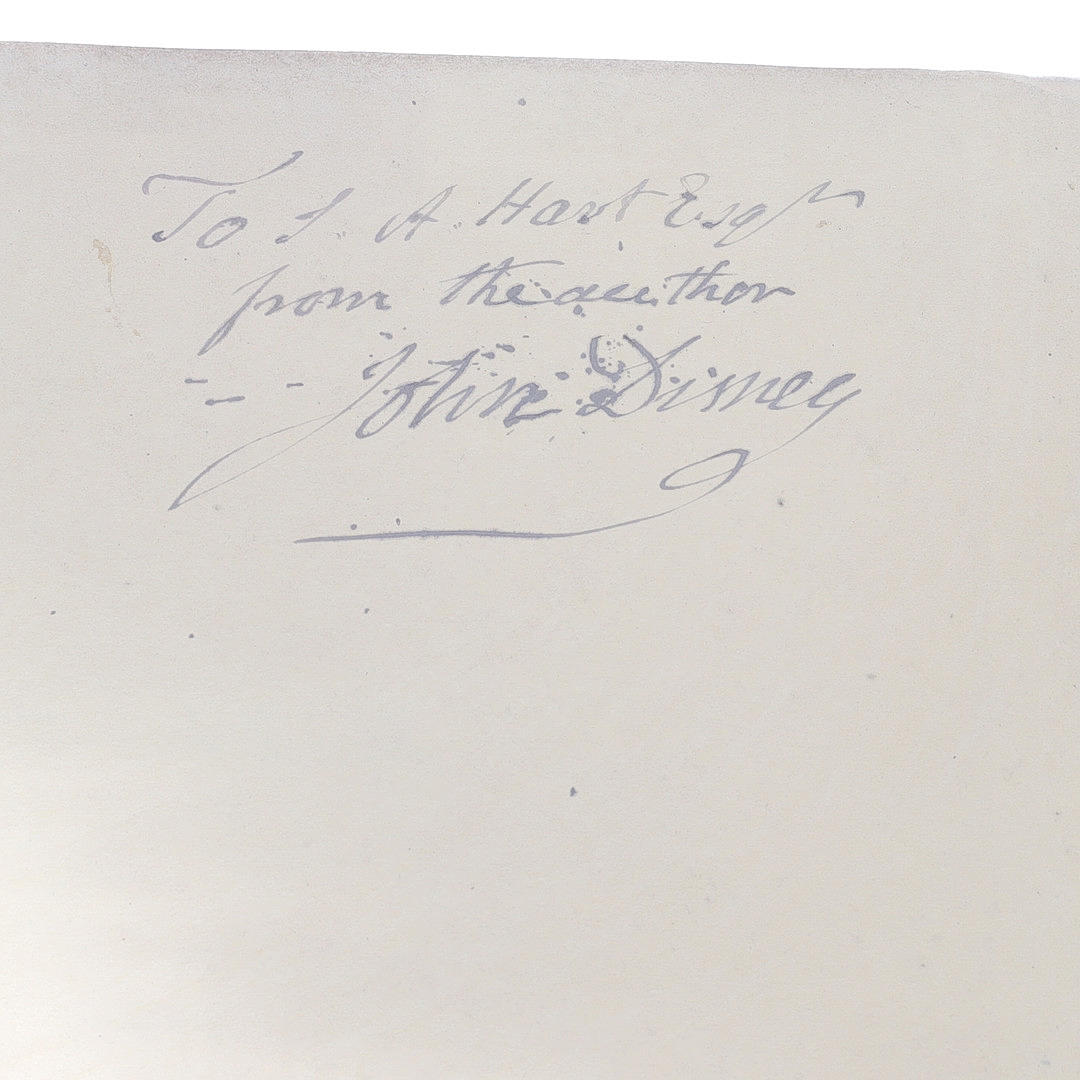 To S. A. Hart Esqr
from the author
John Disney